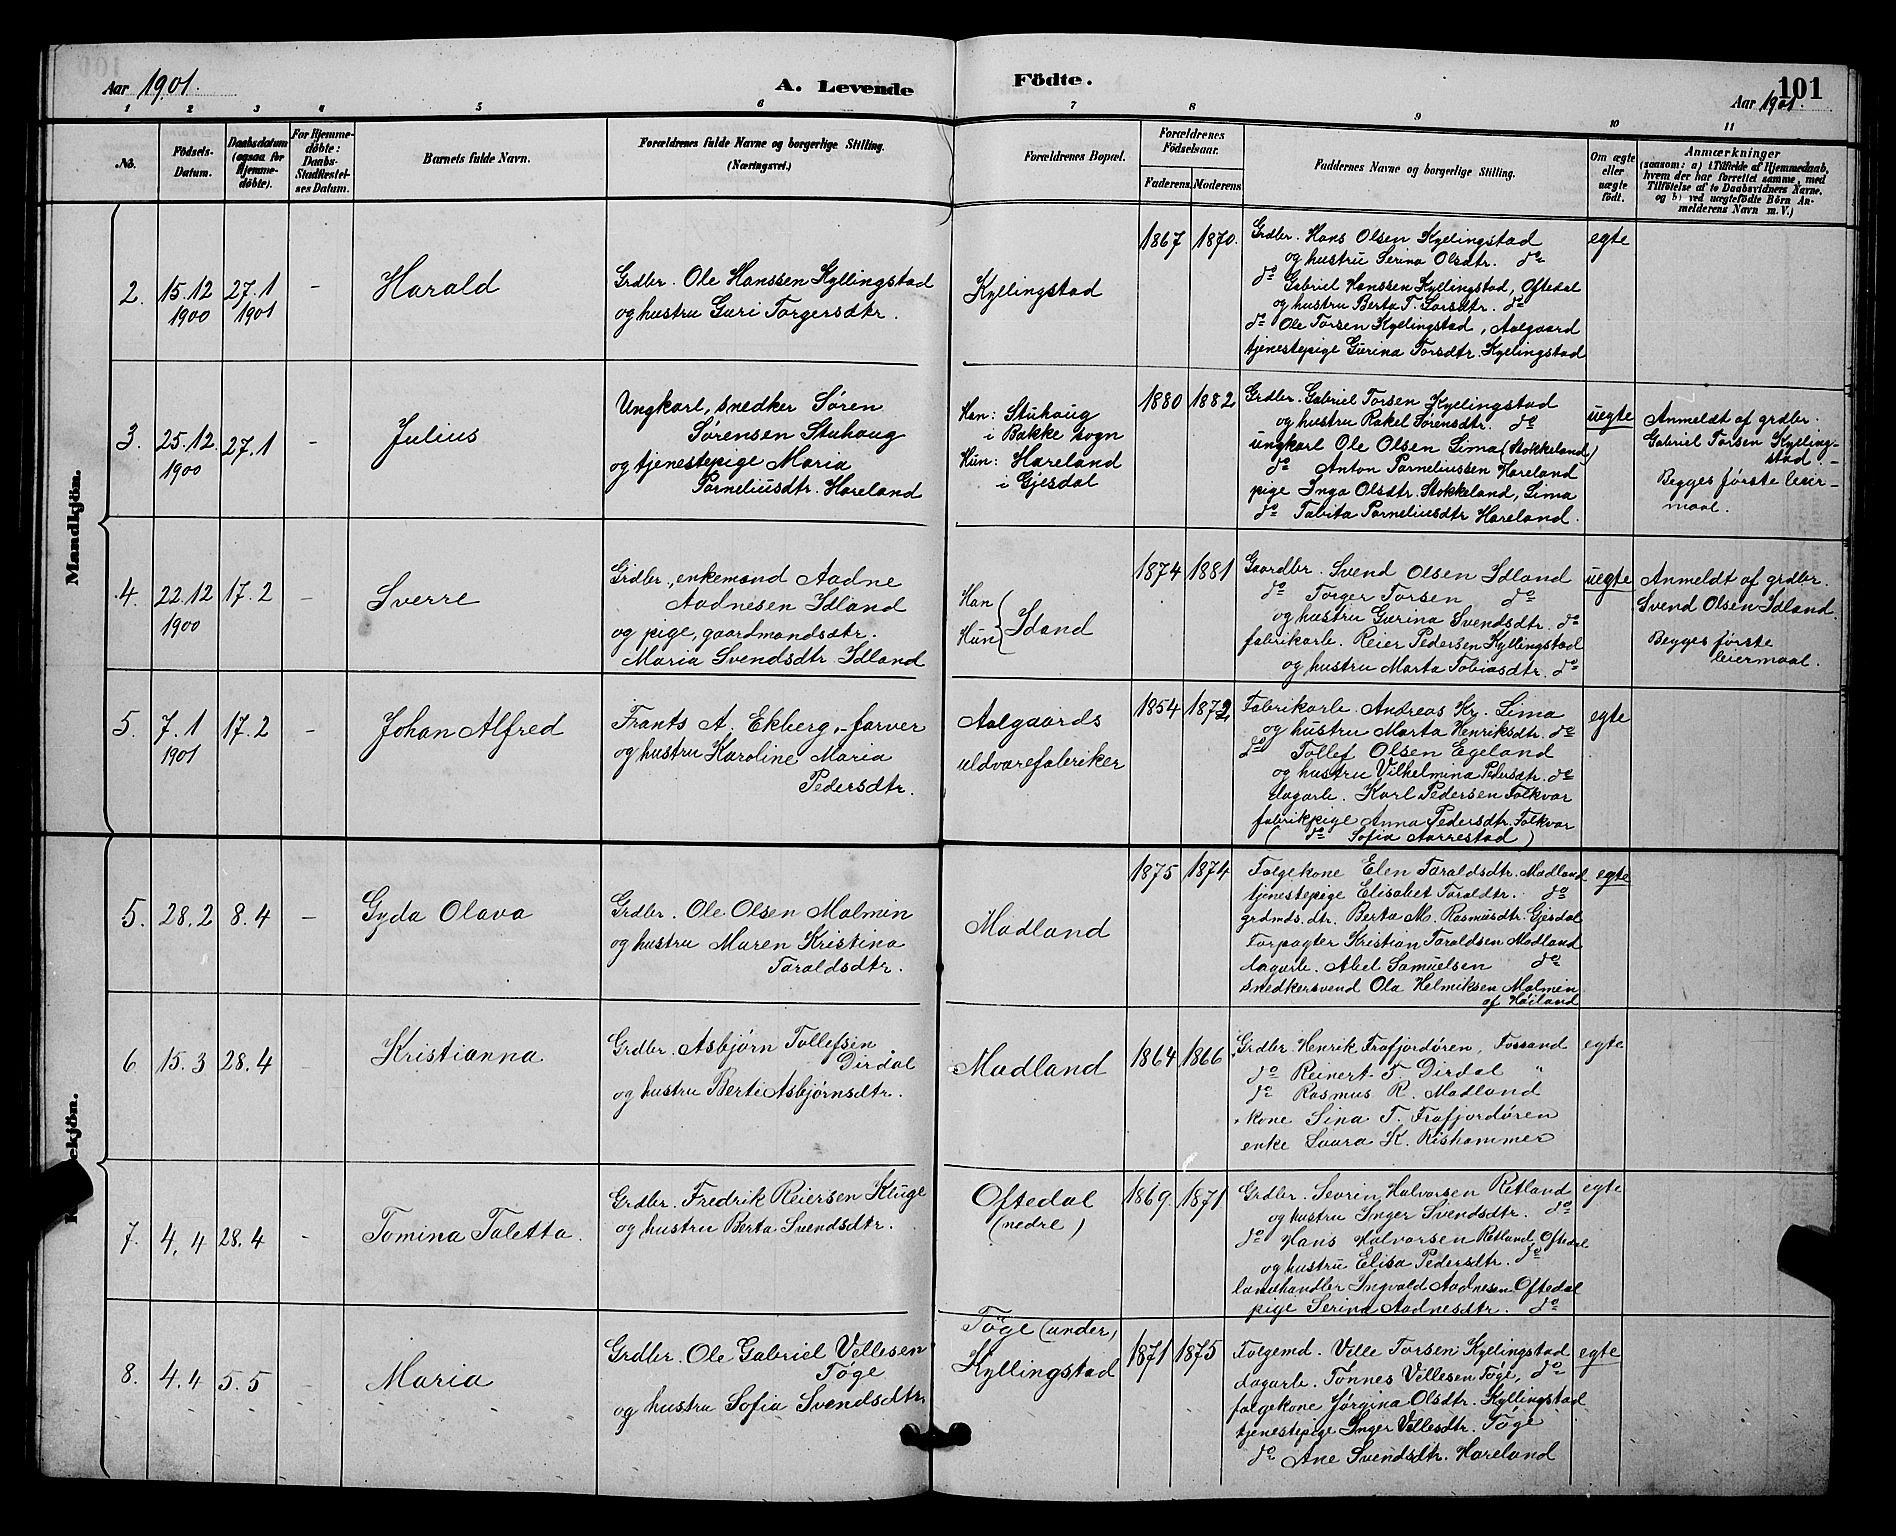 Aar 1901.
A. Levende
Födte.
101
Aar 1901.
1 2 3 4 5 6 7 8 9 10 11
No.
Födsels-
Datum.
Daabsdatum
(ogsaa for
Hjemme-
döbte).
For Hjemme-
döbte:
Daabs-
Stadfæstel-
ses Datum.
Barnets fulde Navn.
Forældrenes fulde Navne og borgerlige Stilling.
(Næringsvei.)
Forældrenes Bopæl.
Forældrenes
Födselsaar.
Faderens.
Moderens.
Faddernes Navne og borgerlige Stilling.
Om ægte
eller
uægte
födt.
Anmærkninger
(saasom: a) i Tilfælde af Hjemmedaab,
hvem der har forrettet samme, med
Tilföielse af to Daabsvidners Navne,
og b) ved uægtefödte Börn An-
melderens Navn m. V.)
Mandkjön.
2.
15.12
1900
27.1
1901
-
Harald
Grdbr. Ole Hanssen Kyllingstad
og hustru Guri Torgersdtr.
Kyllingstad
1867
1870.
Grdbr. Hans Olsen Kyllingstad
og hustru Serina Olsdtr. do
do Gabriel Hanssen Kyllingstad, Oftedal
og hustru Berta T. Larsdtr. do
do Ole Torsen Kyllingstad, Aalgaard
tjenestepige Gurina Torsdtr. Kyllingstad
egte
3.
25.12
1900
27.1
-
Julius
Ungkarl, snedker Søren
Sørensen Stuhaug
og tjenestepige Maria
Torneliusdtr. Hareland
Han: Stuhaug
i Bakke sogn
Hun: Hareland
i Gjesdal
1880
1882
Grdbr. Gabriel Torsen Kyllingstad
og hustru Rakel Sørensdtr. do
ungkarl Ole Olsen Lima (Stokkeland)
do Anton Torneliussen Hareland
pige Inga Olsdtr. Stokkeland, Lima
do Tabita Torneliusdtr Hareland.
uegte
Anmeldt af grdbr.
Gabriel Torsen Kylling-
stad. -
Begges første leier-
maal.
4.
22.12
1900
17.2
-
Sverre
Grdbr., enkemand Aadne
Aadnesen Idland
og pige, gaardmandsdtr.
Maria Svendsdtr Idland
Han
Hun
Idand
1874
1881
Gaardbr. Svend Olsen Idland
do Torger Torsen do
og hustru Gurina Svendsdtr. do
fabrikarb. Reier Pedersen Kyllingstad
og hustru Marta Tobiasdtr. do
uegte
Anmeldt af grdbr.
Svend Olsen Idland.
Begges første
leiermaal.
5.
7.1
1901
17.2
-
Johan Alfred
Frants A. Ekberg, farver
og hustru Karoline Maria
Pedersdtr.
Aalgaards
uldvarefabriker
1854
1872
Fabrikarb. Andreas Kr. Lima
og hustru Marta Henriksdtr. do
do Tollef Olsen Egeland
og hustru Vilhelmina Pedersdtr. do
dagarb. Karl Pedersen Folkvar
fabrikpige Anna Pedersdtr. Folkvar
( do Sofia Aarrestad)
egte
5.
28.2
8.4
-
Gyda Olava
Grdbr. Ole Olsen Malmin
og hustru Maren Kristina
Taraldsdtr.
Madland
1875
1874
Folgekone Elen Taraldsdtr. Madland
tjenestepige Elisabet Taraldtr. do
grdmds.dtr. Berta M. Rasmusdtr. Gjesdal
Forpagter Kristian Taraldsen Madland
dagarb. Abel Samuelsen do
snedkersvend Ola Helmiksen Malmin
af Høiland
egte
6
15.3
28.4
Kristianna
Grdbr. Asbjørn Tollefsen
Dirdal
og hustru Berte Asbjørnsdtr.
Madland
1864
1866
Grdbr. Henrik Frafjordøren, Fossand
do Reinert T Dirdal "
do Rasmus R. Madland
kone Sina T. Frafjordøren
enke Saara K. Rishammer
egte
7.
4.4
28.4
-
Tomina Taletta.
Grdbr. Fredrik Reiersen Kluge
og hustru Berta Svendsdtr.
Oftedal
(nedre)
1869.
1871
Grdbr. Sevrin Halvorsen Retland
og hustru Inger Svendsdtr. do
do Hans Halvorsen Retland, Oftedal
og hustru Elisa Pedersdtr. do
landhandler Ingvald Aadnesen Oftedal
pige Serina Aadnesdtr. do
egte
8.
4.4
5.5
Maria
Grdbr. Ole Gabriel Vellesen
Tøge
og hustru Sofia Svendsdtr.
Tøge (under)
Kyllingstad
1871
1875
Folgemd. Velle Torsen Kyllingstad
dagarb. Tønnes Vellesen Tøge, do
folgekone Jørgina Olsdtr. Kyllingstad
tjenestepige Inger Vellesdtr. Tøge
do Ane Svendsdtr. Hareland
egte